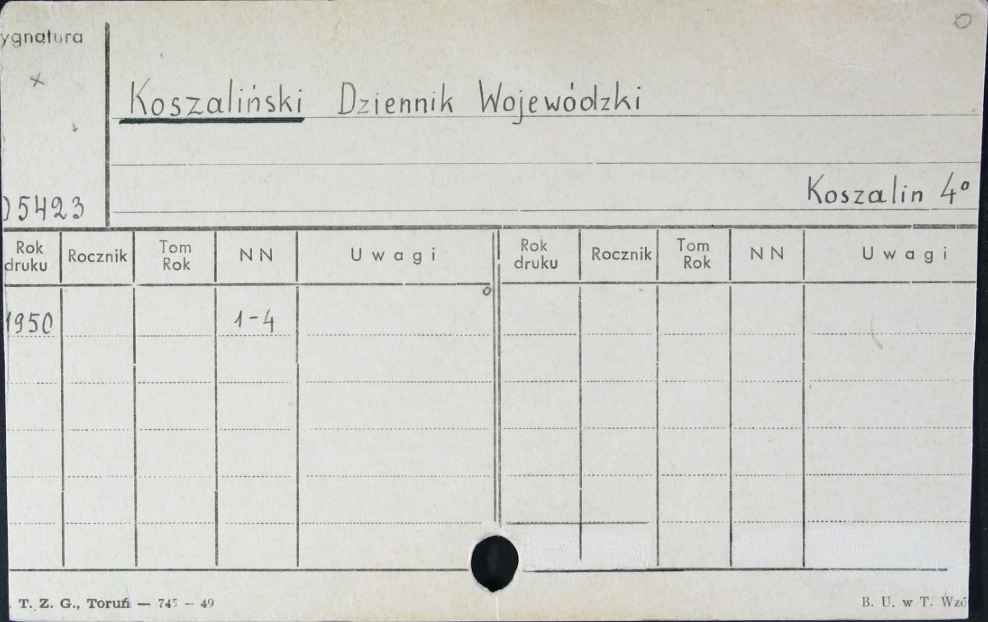 ygnatura
Koszaliński Dziennik Wojewódzki
Koszalin 4°
05423
Rok druku Rocznik Tom Rok NN Uwagi Rok druku Rocznik Tom Rok NN Uwagi
1950 1-4
T. Z. G., Toruń — 745 — 49
B. U. w T. Wzó